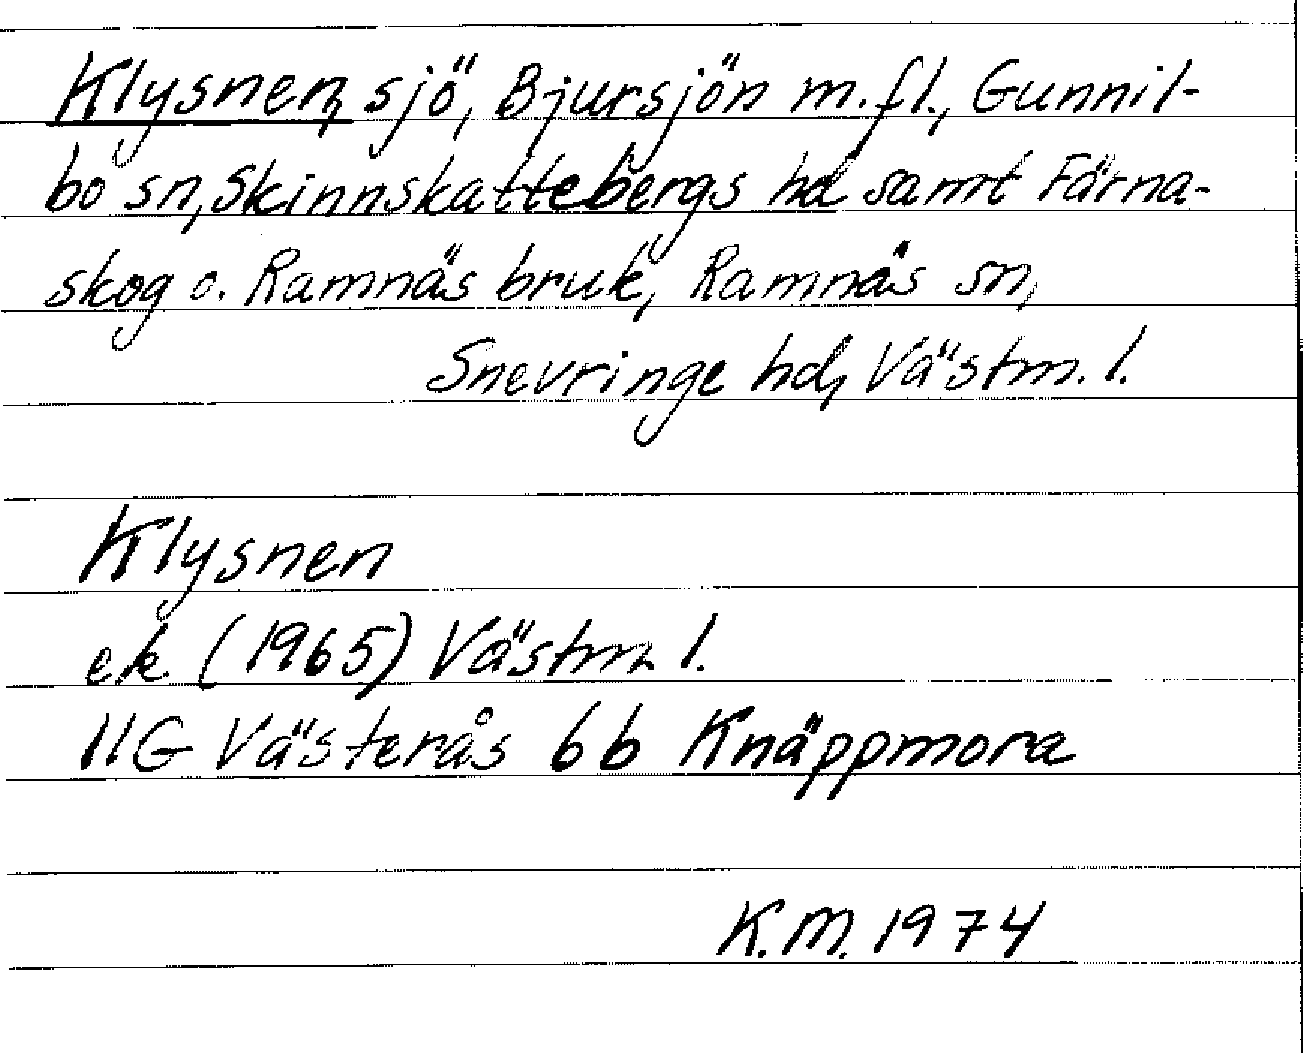 Klysnen, sjö, Bjursjön m.fl., Gunnil-
bo sn, Skinnskattebergs hd samt Färna-
skog o. Ramnäs bruk, Ramnäs sn,
Snevringe hd, Västm. l.
Klysnen
ek (1965) Västm. l.
11G Västerås 6b Knäppmora
K.M. 1974